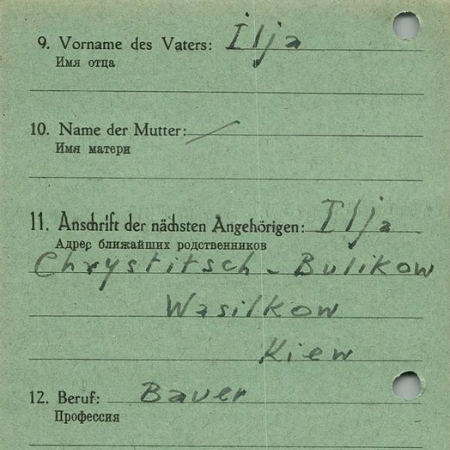 9. Vorname des Vaters: Ilja
Имя отца
10. Name der Mutter: —
Имя матери
11. Anschrift der nächsten Angehörigen: Ilja
Адрес ближайших родственников
Chrystitsch - Bulikow
Wasilkow
Kiew
12. Beruf: Bauer
Профессия